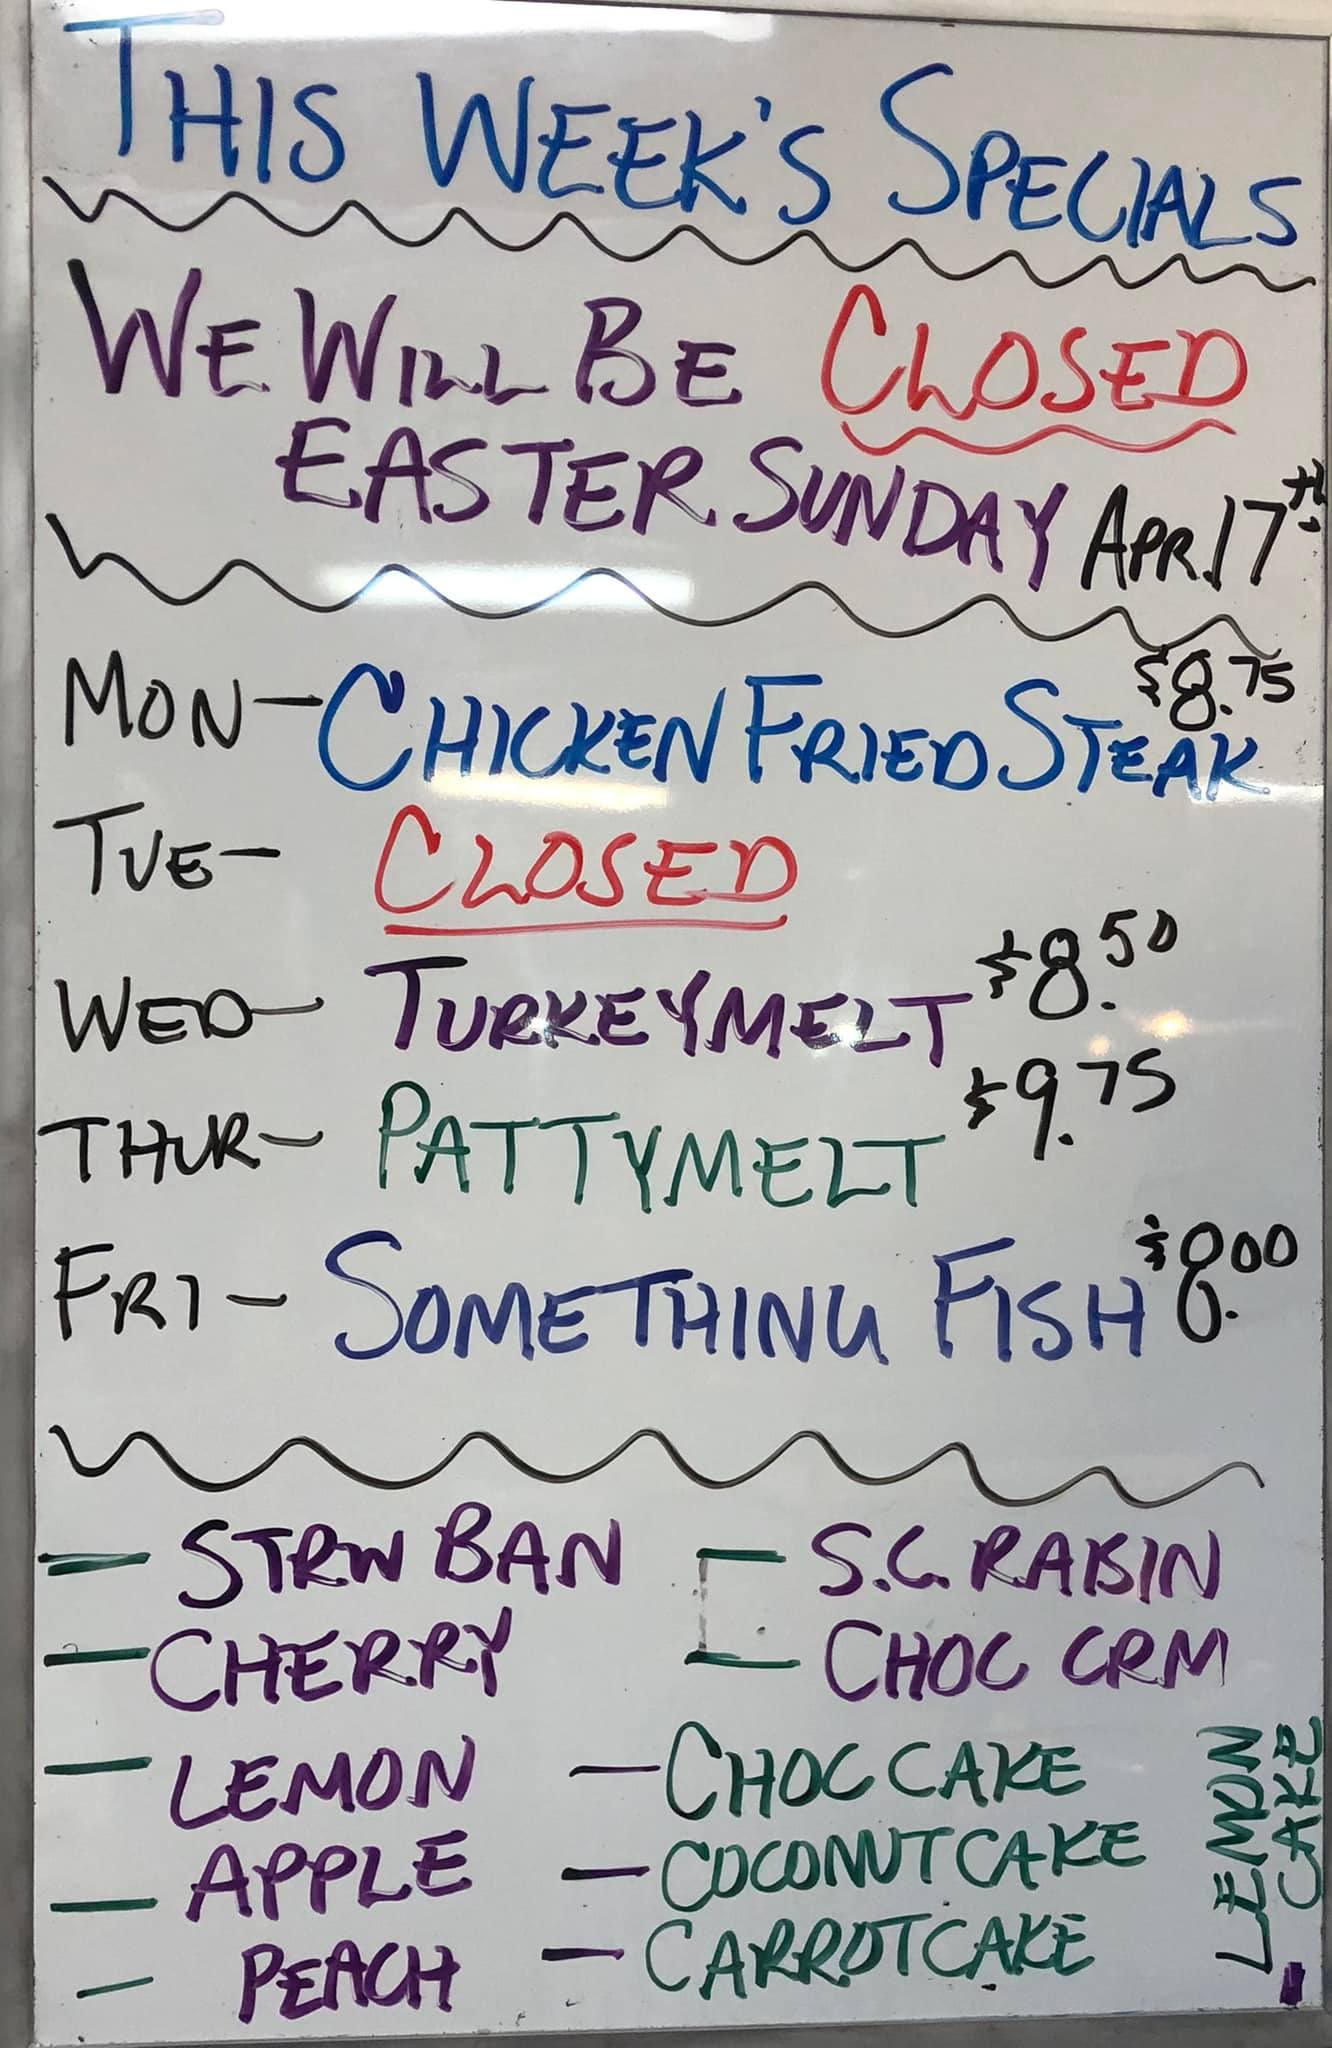 THIS WEEK'S SPECIALS
WE WILL BE CLOSED
EASTER SUNDAY APR. 17th
MON - CHICKEN FRIED STEAK $8.75
TUE - CLOSED
WED - TURKEY MELT $8.50
THUR - PATTY MELT $9.75
FRI - SOMETHING FISH $8.00
- STRW BAN
- CHERRY
- LEMON
- APPLE
- PEACH
- S.C. RAISIN
- CHOC CRM
- CHOC CAKE
- COCONUT CAKE
- CARROT CAKE
- LEMON
CAKE